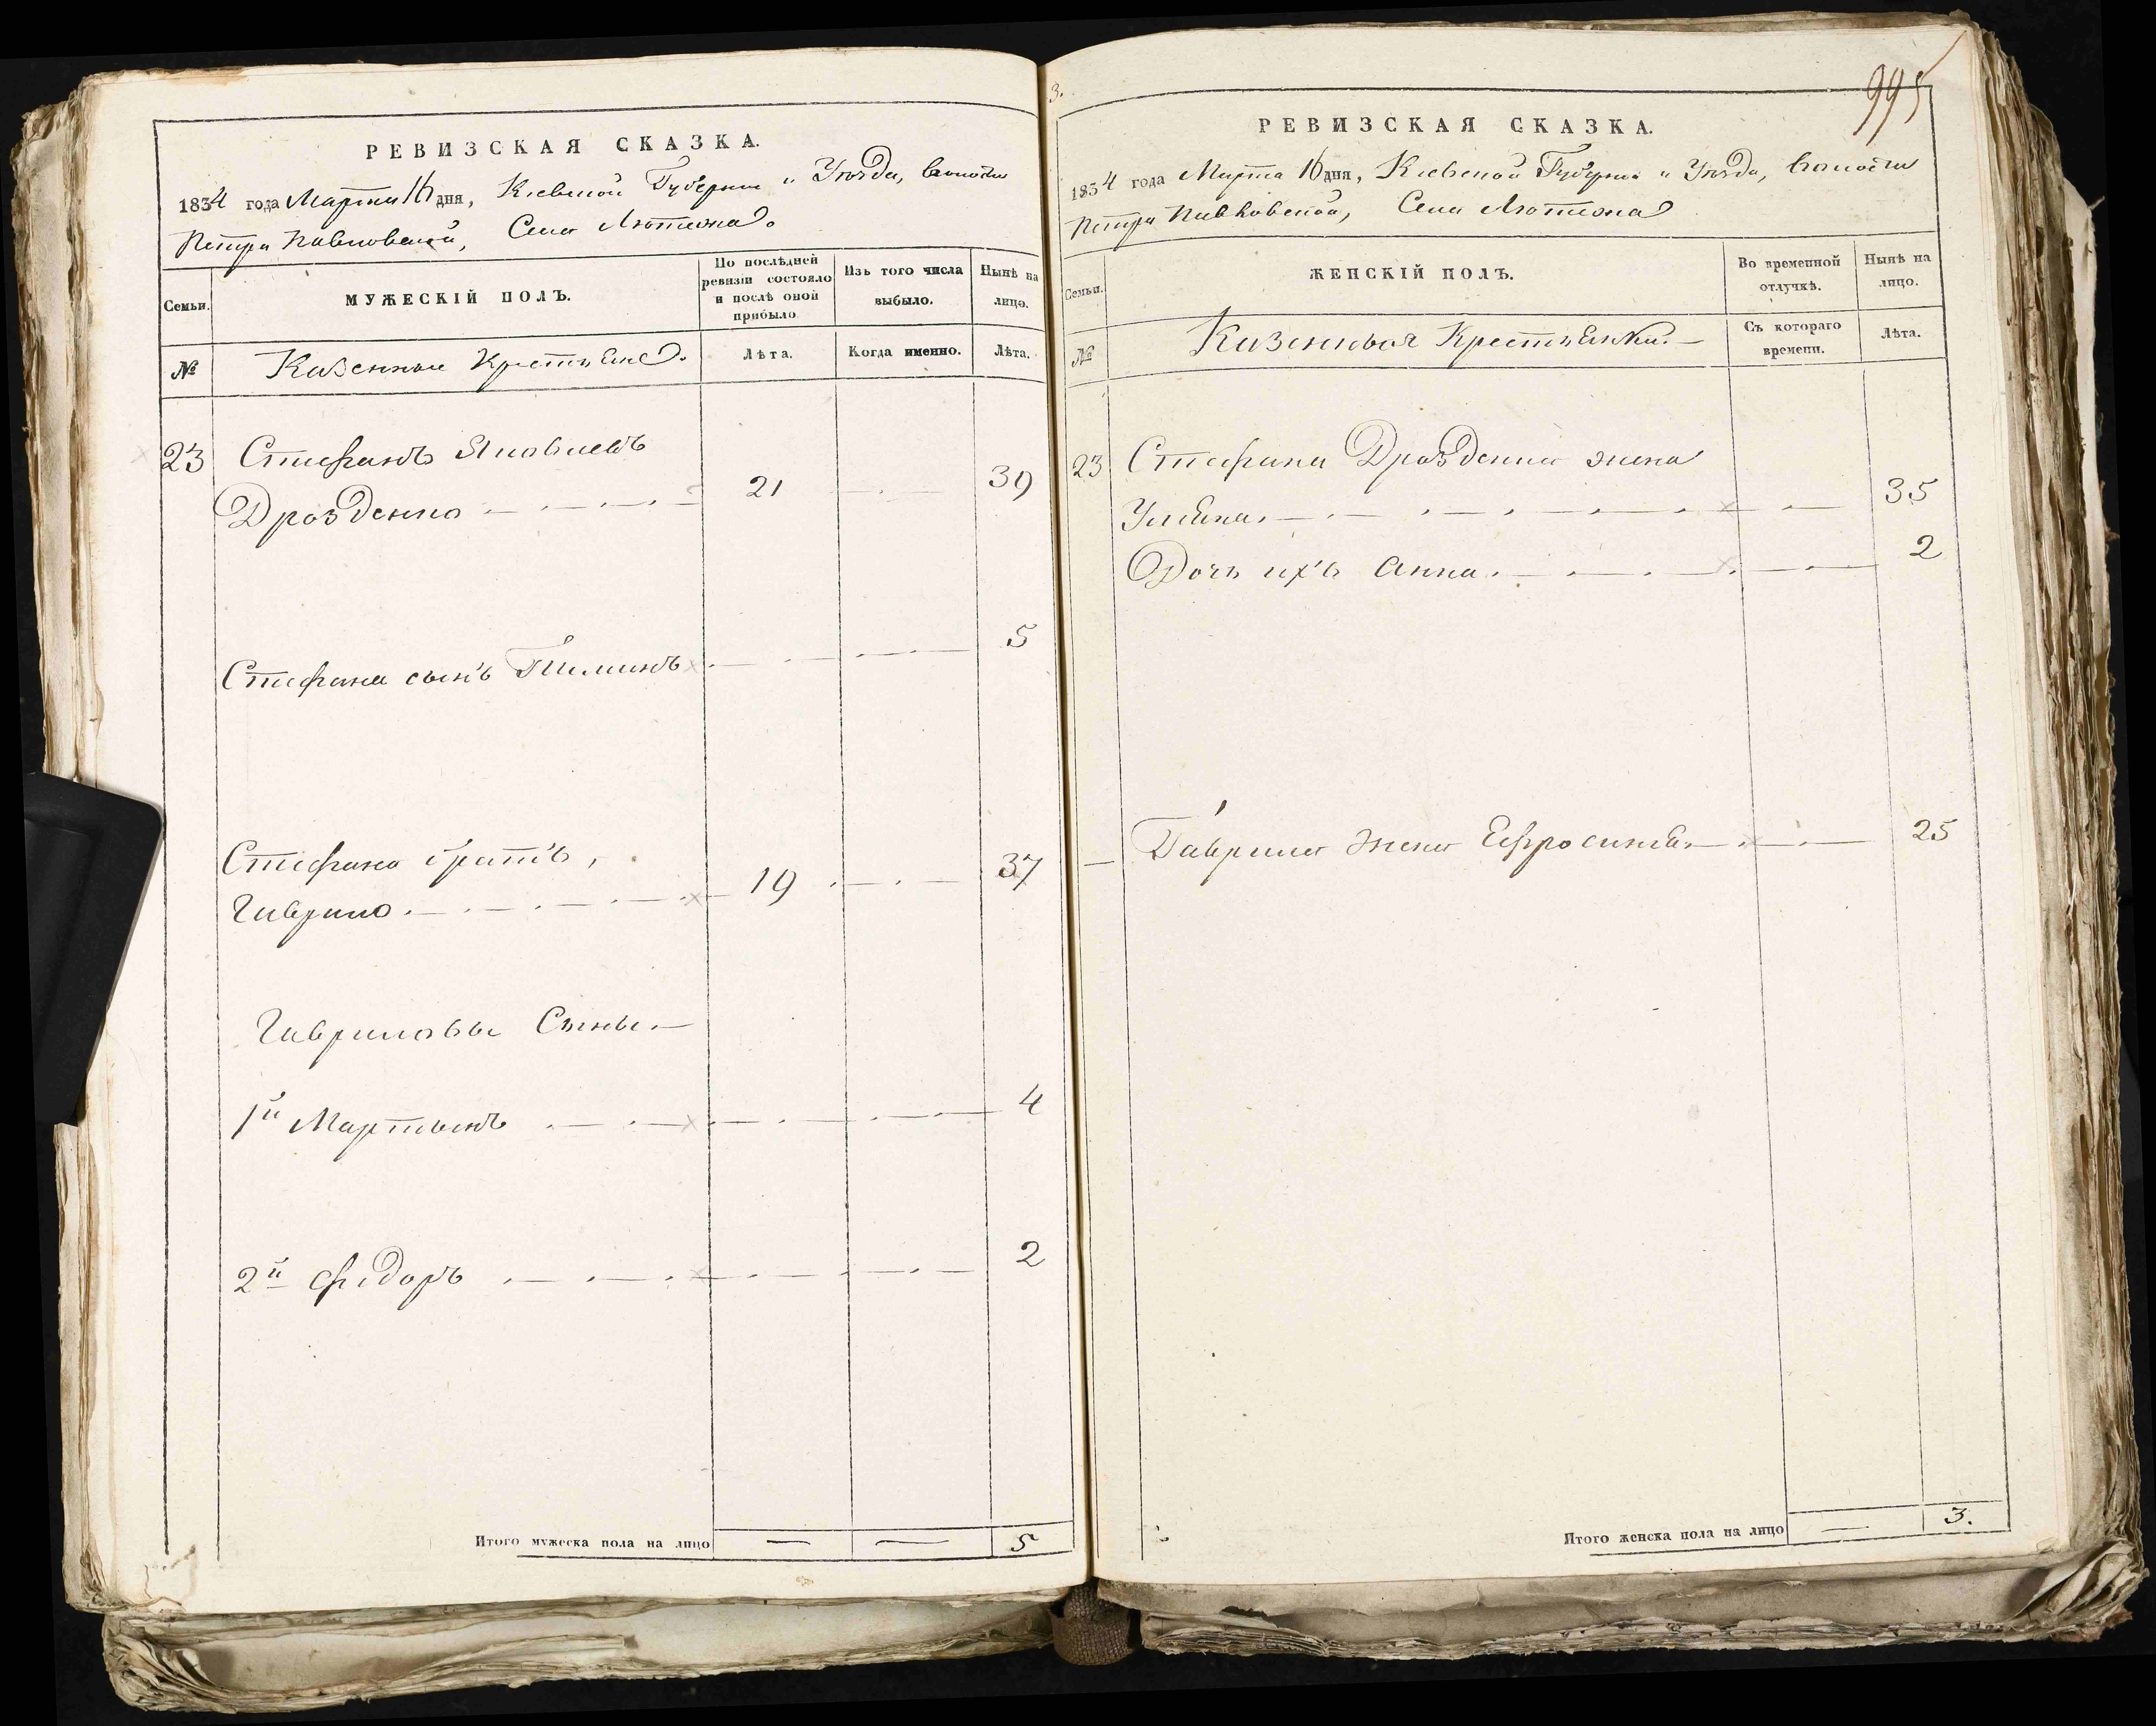 РЕВИЗСКАЯ СКАЗКА.
1834 года Марта 16 дня, Кіевской Губерніи и Уѣзда, волости
Петро Павловской, Села Лютежа.
Семьи.
МУЖЕСКІЙ ПОЛЪ.
По послѣдней ревизіи состояло и послѣ оной прибыло
Изъ того числа выбыло.
Нынѣ на лицо.
№
Казенные Крестьяне.
Лѣта.
Когда именно.
Лѣта.
23 Стефанъ Яковлевъ
Дрозденко 21 39
Стефана сынъ Тиминъ 5
Стефана братъ,
Гаврило 19 37
Гавриловы Сыны
1й Мартынъ 4
2й Федоръ 2
Итого мужеска пола на лицо — — 5
3.
995
РЕВИЗСКАЯ СКАЗКА.
1834 года Марта 16 дня, Кіевской Губерніи и Уѣзда, волости
Петро Павловской, Села Лютежа
Семьи.
ЖЕНСКІЙ ПОЛЪ.
Во временной отлучкѣ.
Нынѣ на лицо.
№
Казенныя Крестьянки.
Съ котораго времени.
Лѣта.
23 Стефана Дрозденка жена
Ульяна 35
Дочь ихъ Анна 2
Гаврила жена Ефросинья 25
Итого женска пола на лицо — 3.